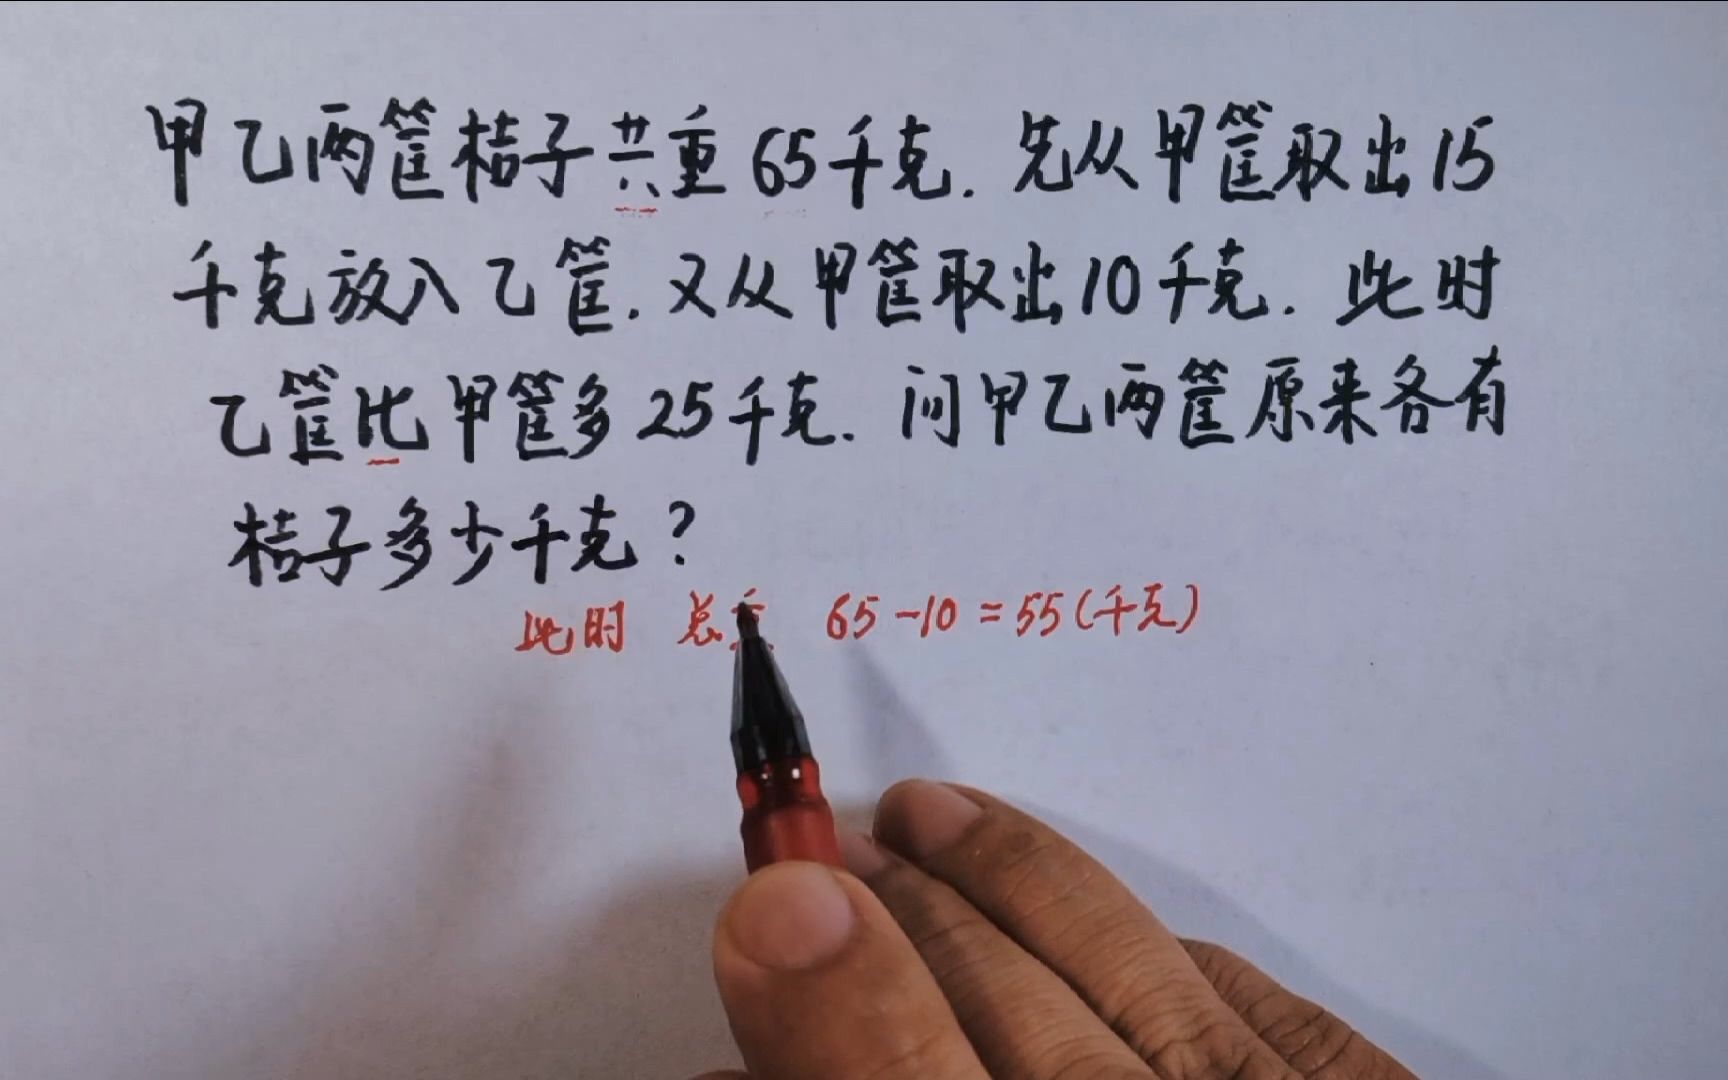 甲乙两筐桔子共重65千克.先从甲筐取出15
千克放入乙筐.又从甲筐取出10千克.此时
乙筐比甲筐多25千克.问甲乙两筐原来各有
桔子多少千克?
此时 总重 65-10=55(千克)